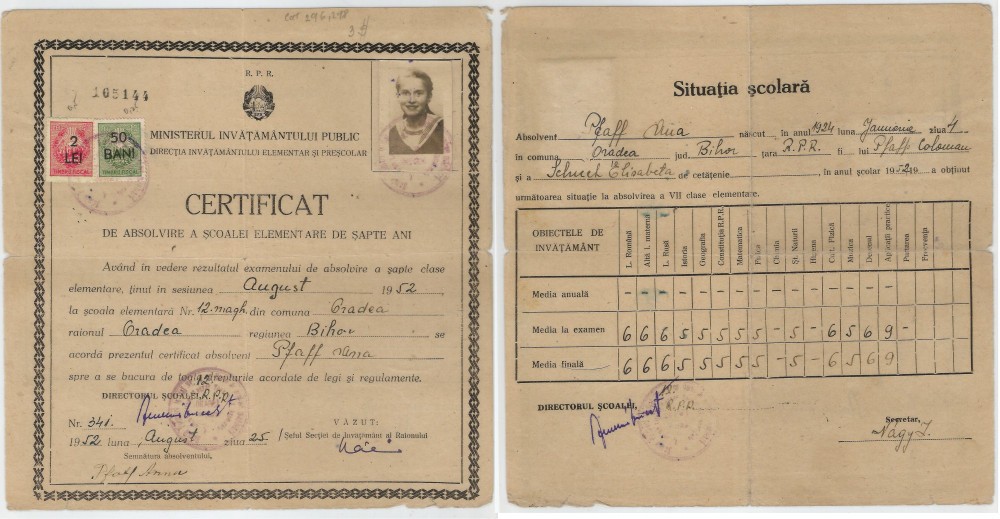 165144
R. P. R.
2
LEI
50
BANI
MINISTERUL INVĂȚĂMÂNTULUI PUBLIC
DIRECȚIA INVĂȚĂMÂNTULUI ELEMENTAR ȘI PREȘCOLAR
CERTIFICAT
DE ABSOLVIRE A ȘCOALEI ELEMENTARE DE ȘAPTE ANI
Având in vedere rezultatul examenului de absolvire a șapte clase
elementare, ținut in sesiunea August 1952,
la școala elementară Nr. 12. magh. din comuna Oradea
raionul Oradea regiunea Bihor se
acordă prezentul certificat absolvent Pfaff Ana
spre a se bucura de toate drepturile acordate de legi și regulamente.
DIRECTORUL ȘCOALEI,
R.P.R.
Nr. 341.
1952 luna August ziua 25
VĂZUT:
Șeful Secției de Invățământ al Raionului
Semnătura absolventului,
Pfaff Anna
Situația școlară
Absolvent Pfaff Ana născut in anul 1924 luna Januarie ziua 4
in comuna Oradea jud. Bihor țara R.P.R. fi lui Pfaff Coloman
și a Schuch Elisabeta de cetățenie, in anul școlar 1952 19 a obținut
următoarea situație la absolvirea a VII clase elementare.
OBIECTELE DE INVĂȚĂMÂNT L. Română Altă l. maternă L. Rusă Istoria Geografia Constituția R.P.R. Matematica Fizica Chimia Șt. Naturii Higiena Cult. Fizică Muzica Desenul Aplicații practice Purtarea
Media anuală - - - - - - - - - - - - - - - -
Media la examen 6 6 6 5 5 5 5 5 - 5 - 6 5 6 9 -
Media finală 6 6 6 5 5 5 5 5 - 5 - 6 5 6 9
DIRECTORUL ȘCOALEI,
R.P.R.
Secretar,
Nagy I.